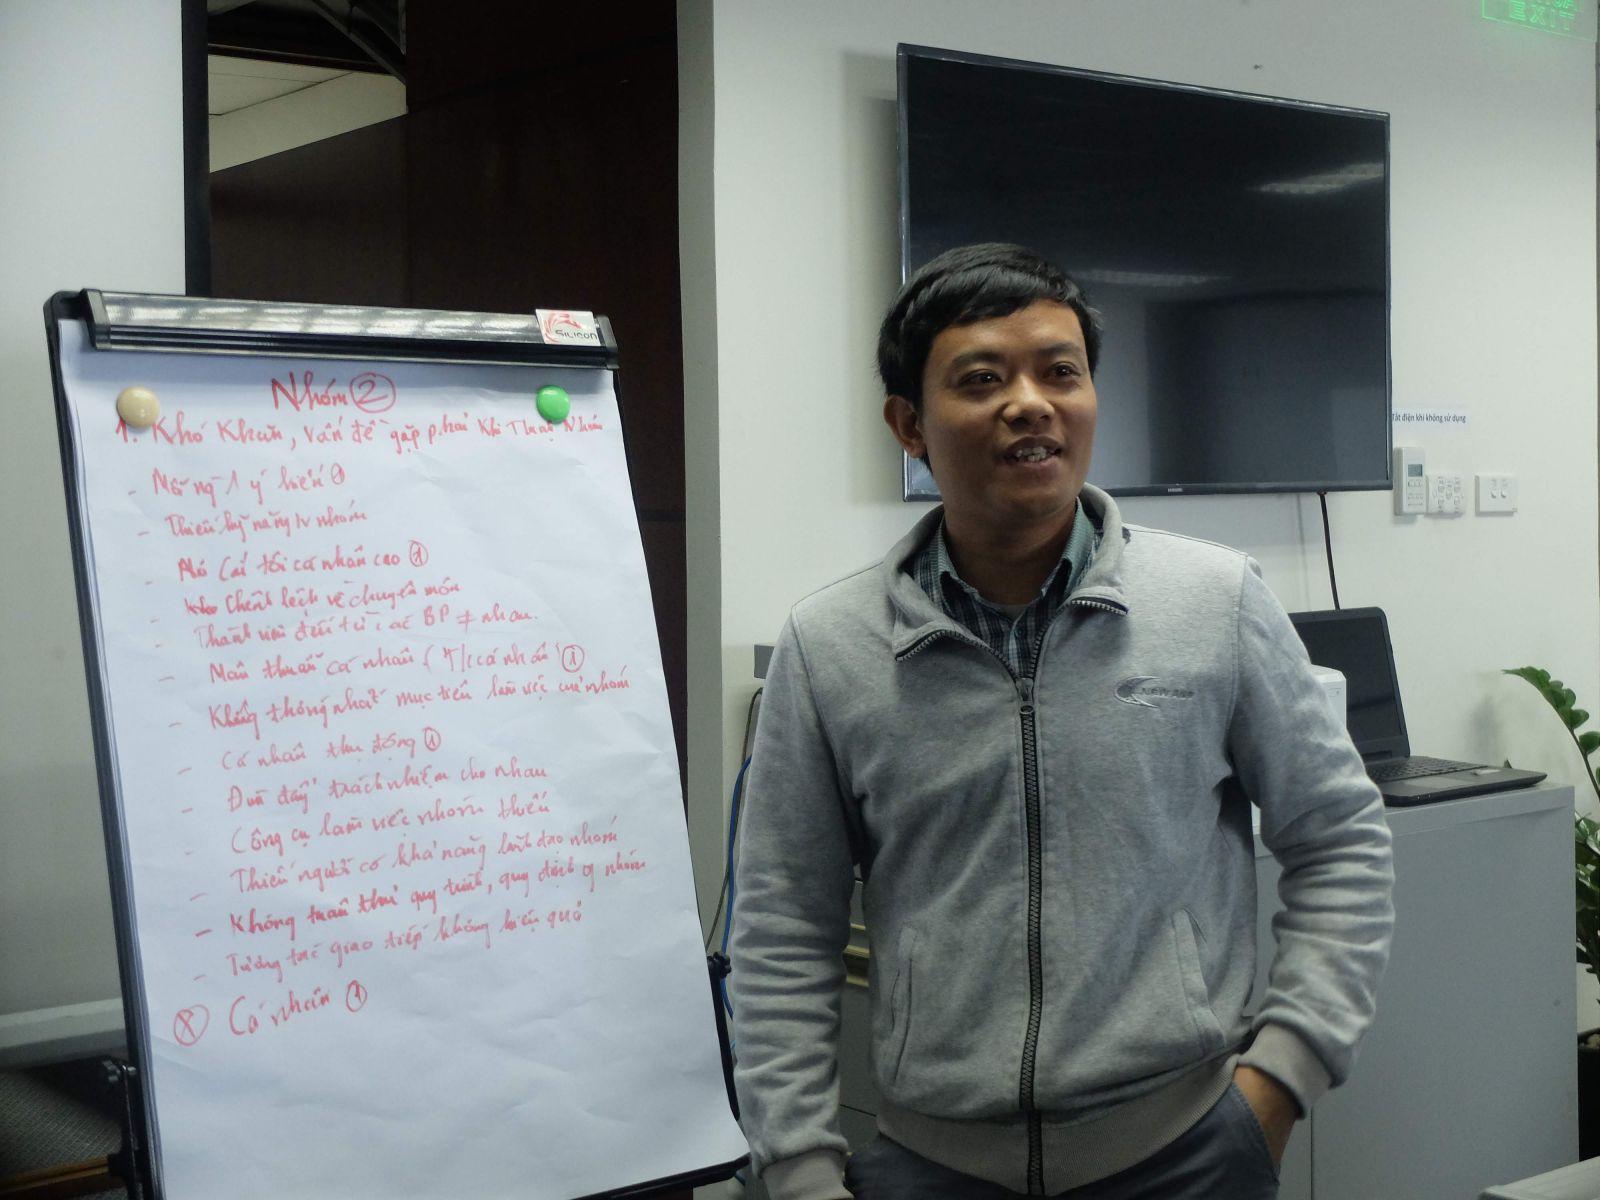 Nhóm 2
1. Khó Khăn, Vấn đề gặp phải khi Nhóm
- Mỗi ng 1 ý kiến 1
- Thiếu kỹ năng lv nhóm
- Cái tôi cá nhân cao 1
- Chênh lệch về chuyên môn
- Thành viên đến từ các BP ≠ nhau.
- Mâu thuẫn cá nhân (T/c cá nhân) 1
- Không thống nhất mục tiêu làm việc của nhóm
- Cá nhân thụ động 1
- Đùn đẩy trách nhiệm cho nhau
- Công cụ làm việc nhóm thiếu
- Thiếu người có khả năng lãnh đạo nhóm
- Không tuân thủ quy trình, quy định nhóm
- Tương tác giao tiếp không hiệu quả
X Cá nhân 1
SILICON
SAMSUNG
Tắt điện khi không sử dụng
EXIT